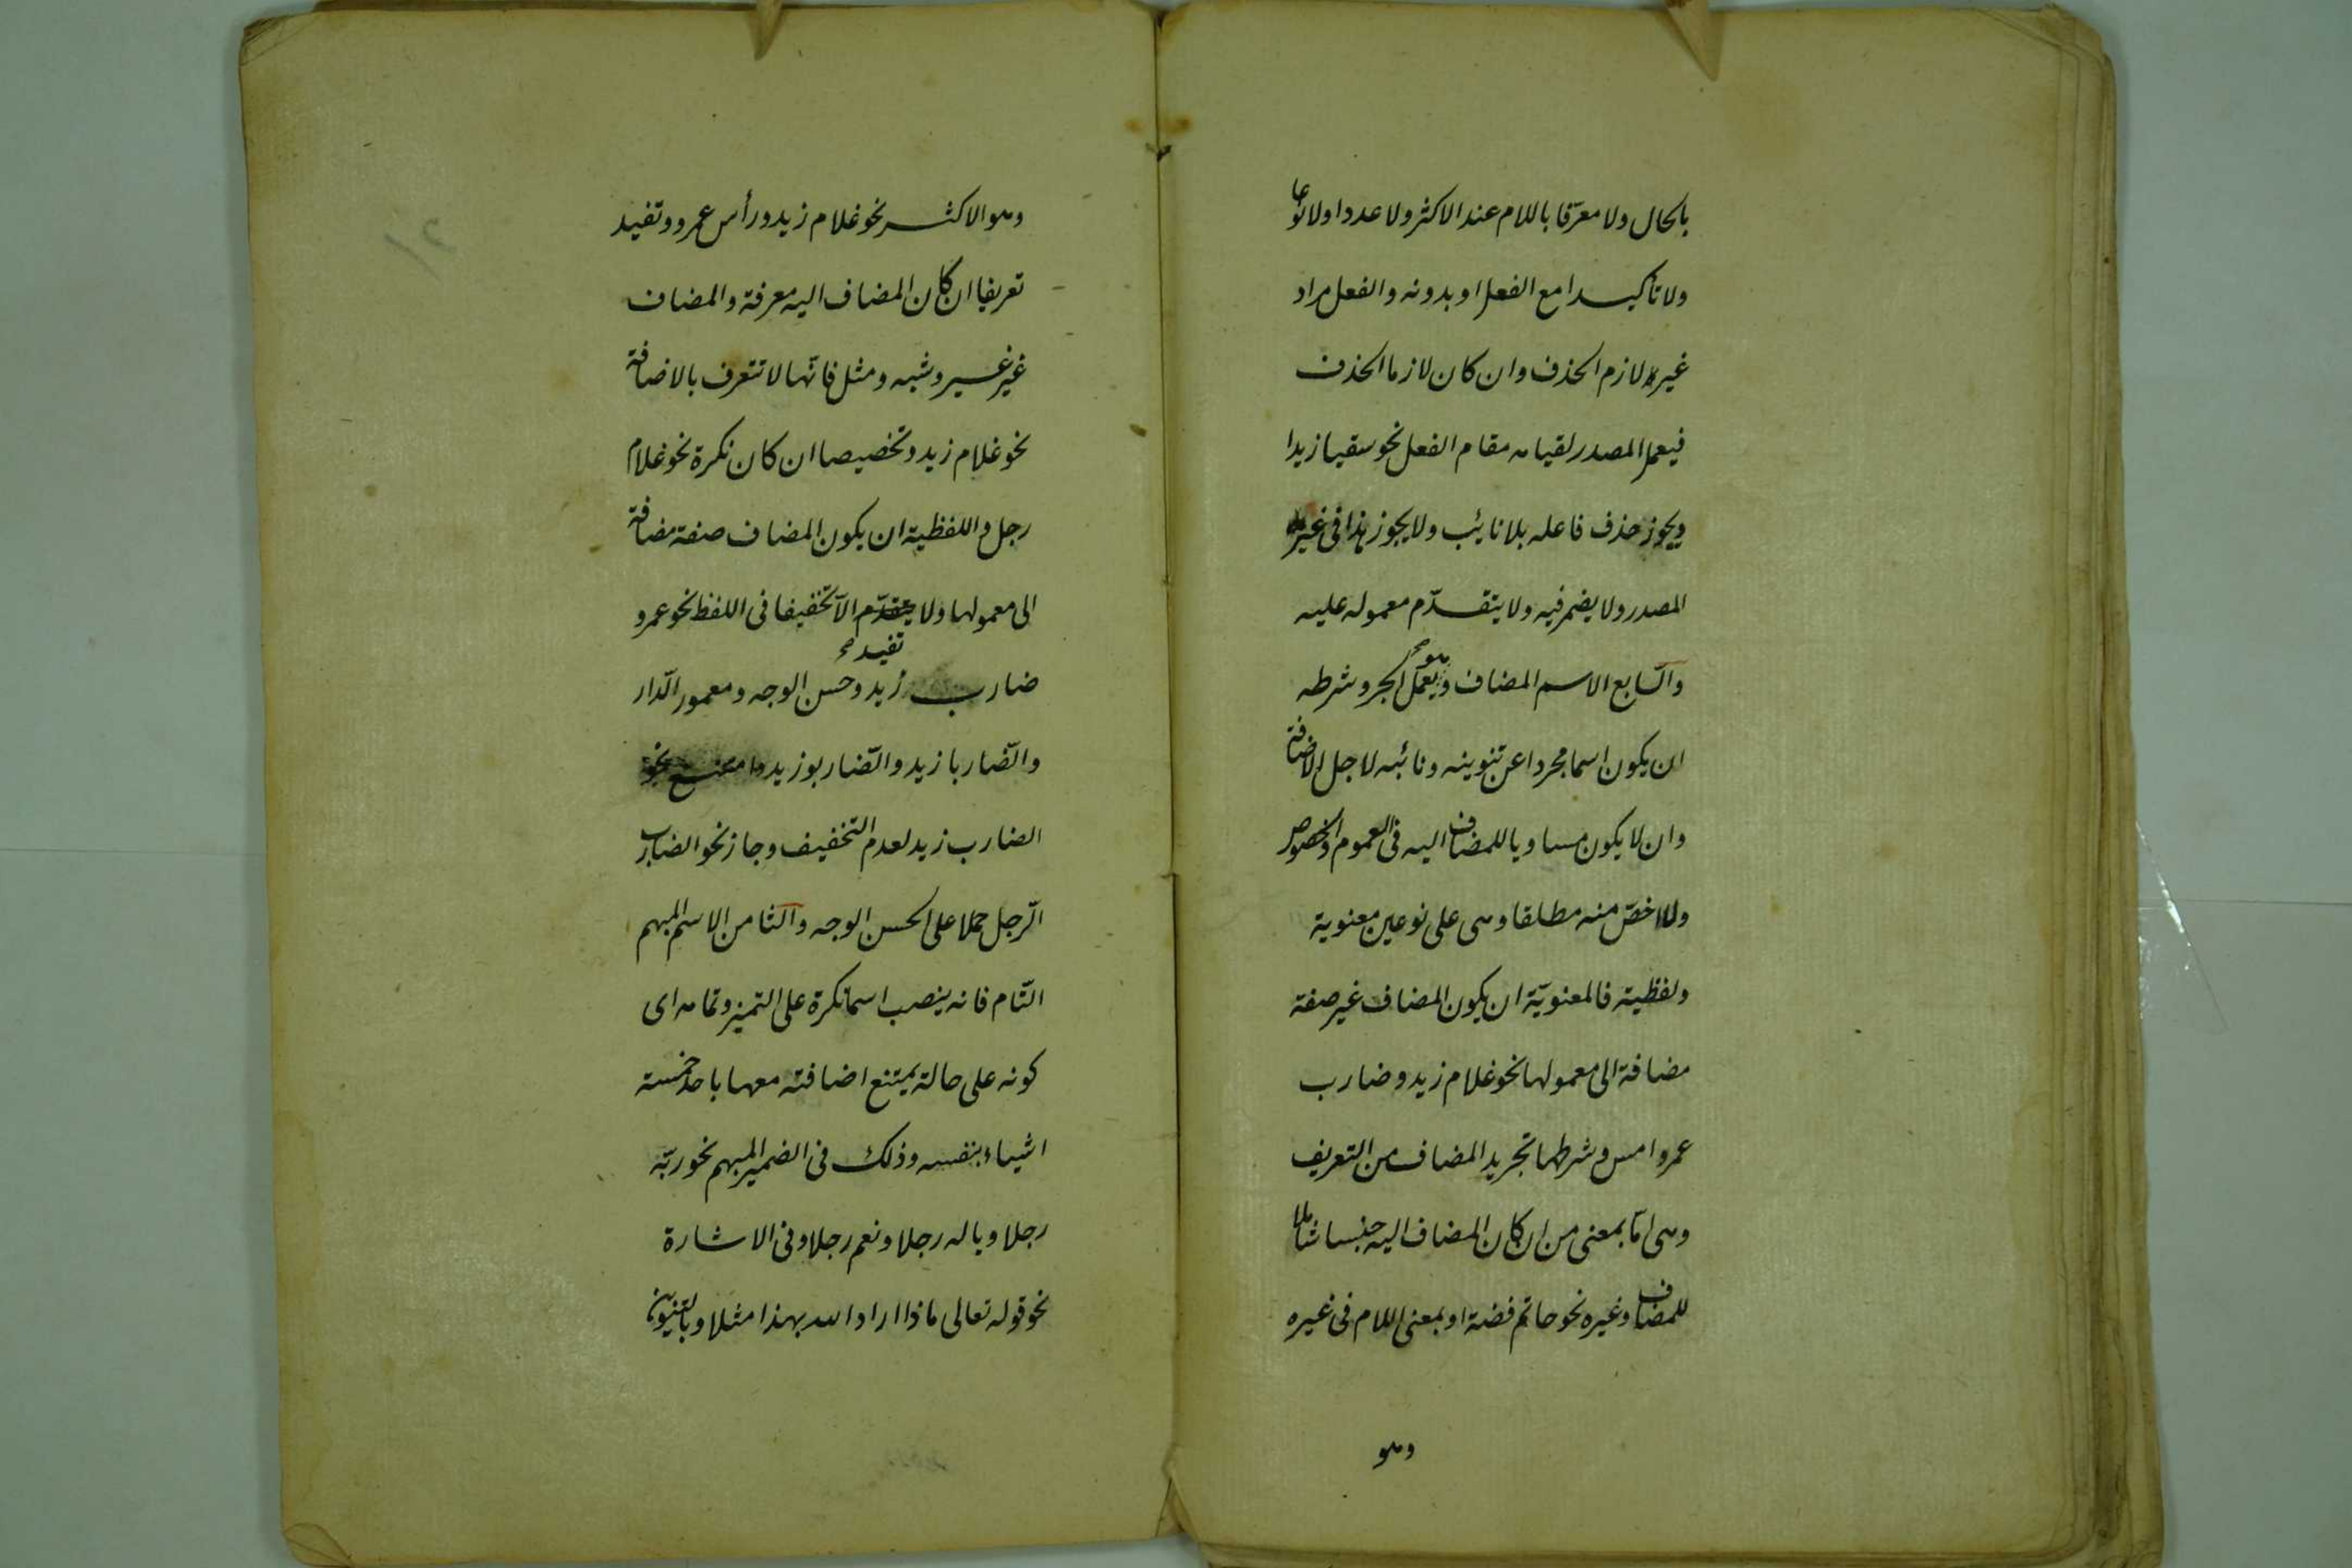 بالحال ولا معرّفا باللام عند الاكثر ولا عددا ولا نوعا
ولا تأكيدا مع الفعل او بدونه والفعل مراد
غير لازم الحذف وان كان لازما الحذف
فيعمل المصدر لقيامه مقام الفعل نحو سقيا زيدا
ويجوز حذف فاعله بلا نائب ولا يجوز هذا في غير
المصدر ولا يضمر فيه ولا يتقدّم معموله عليه
والسّابع الاسم المضاف وهو يعمل الجر وشرطه
ان يكون اسما مجردا عن تنوينه ونائبه لاجل الاضافة
وان لا يكون مساويا للمضاف اليه في العموم والخصوص
ولا اخصّ منه مطلقا وهى على نوعين معنوية
ولفظية فالمعنويّة ان يكون المضاف غير صفة
مضافة الى معمولها نحو غلام زيد وضارب
عمرو امس وشرطها تجريد المضاف من التعريف
وهى امّا بمعنى من ان كان المضاف اليه جنسا شاملا
للمضاف وغيره نحو خاتم فضة او بمعنى اللام فى غيره
وهو
وهو الاكثر نحو غلام زيد ورأس عمرو وتفيد
تعريفا ان كان المضاف اليه معرفة والمضاف
غير غير وشبه ومثل فانّها لا تتعرف بالاضافة
نحو غلام زيد وتخصيصا ان كان نكرة نحو غلام
رجل واللفظية ان يكون المضاف صفة مضافة
الى معمولها ولا يتقدّم الّا تخفيفا فى اللفظ نحو عمرو
تفيد صح
ضارب زيد وحسن الوجه ومعمور الدّار
والضّاربا زيد والضّاربو زيد وامتنع نحو
الضارب زيد لعدم التخفيف وجاز نحو الضارب
الرّجل حملا على الحسن الوجه والثامن الاسم المبهم
التّام فانه ينصب اسما نكرة على التميز وتمامه اى
كونه على حالة يمتنع اضافته معها باحد خمسة
اشياء بنفسه وذلك فى الضمير المبهم نحو ربّه
رجلا ويا له رجلا ونعم رجلا وفى الاشارة
نحو قوله تعالى ماذا اراد الله بهذا مثلا وبالتنوين